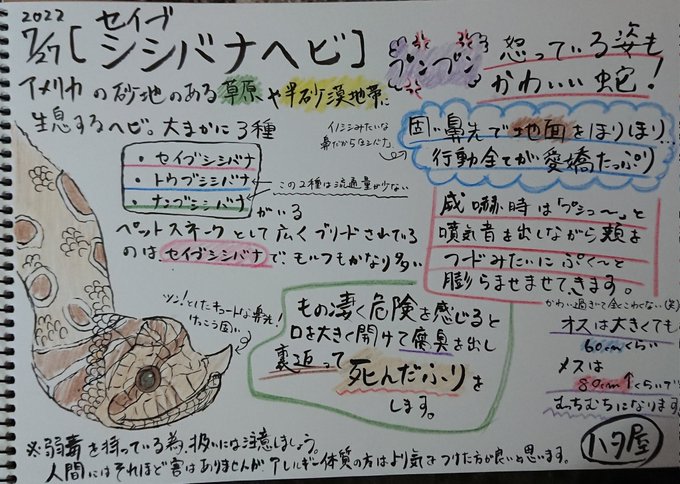 2022
7/27 [セイブシシバナヘビ]
プンプン
怒っている姿も
かわいい蛇!
アメリカの砂地のある草原や半砂漠地帯に
生息するヘビ。大まかに3種
・セイブシシバナ
・トウブシシバナ
・ナンブシシバナ
がいる
イノシシみたいな
鼻だからシシバナ
この2種は流通量が少ない
固い鼻先で地面をほりほり…
行動全てが愛嬌たっぷり
ペットスネークとして広くブリードされている
のはセイブシシバナで、モルフもかなり多い
威嚇時は「プシュ〜」と
噴気音を出しながら頬を
フードみたいにぷく〜と
膨らませませてきます。
かわい過ぎて全くこわくない(笑)
ツン!としたキュートな鼻先!
けっこう固い
もの凄く危険を感じると
口を大きく開けて腐臭を出し
裏返って死んだふりを
します。
オスは大きくても
60cmくらい
メスは
80cm↑くらいで
むっちむちになります
※弱毒を持っている為、扱いには注意しましょう。
人間にはそれほど害はありませんがアレルギー体質の方はより気をつけた方が良いと思います。
ハタ屋